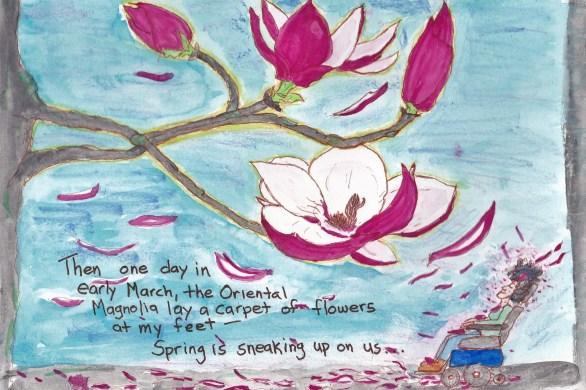 Then one day in
early March, the Oriental
Magnolia lay a carpet of flowers
at my feet —
Spring is sneaking up on us...